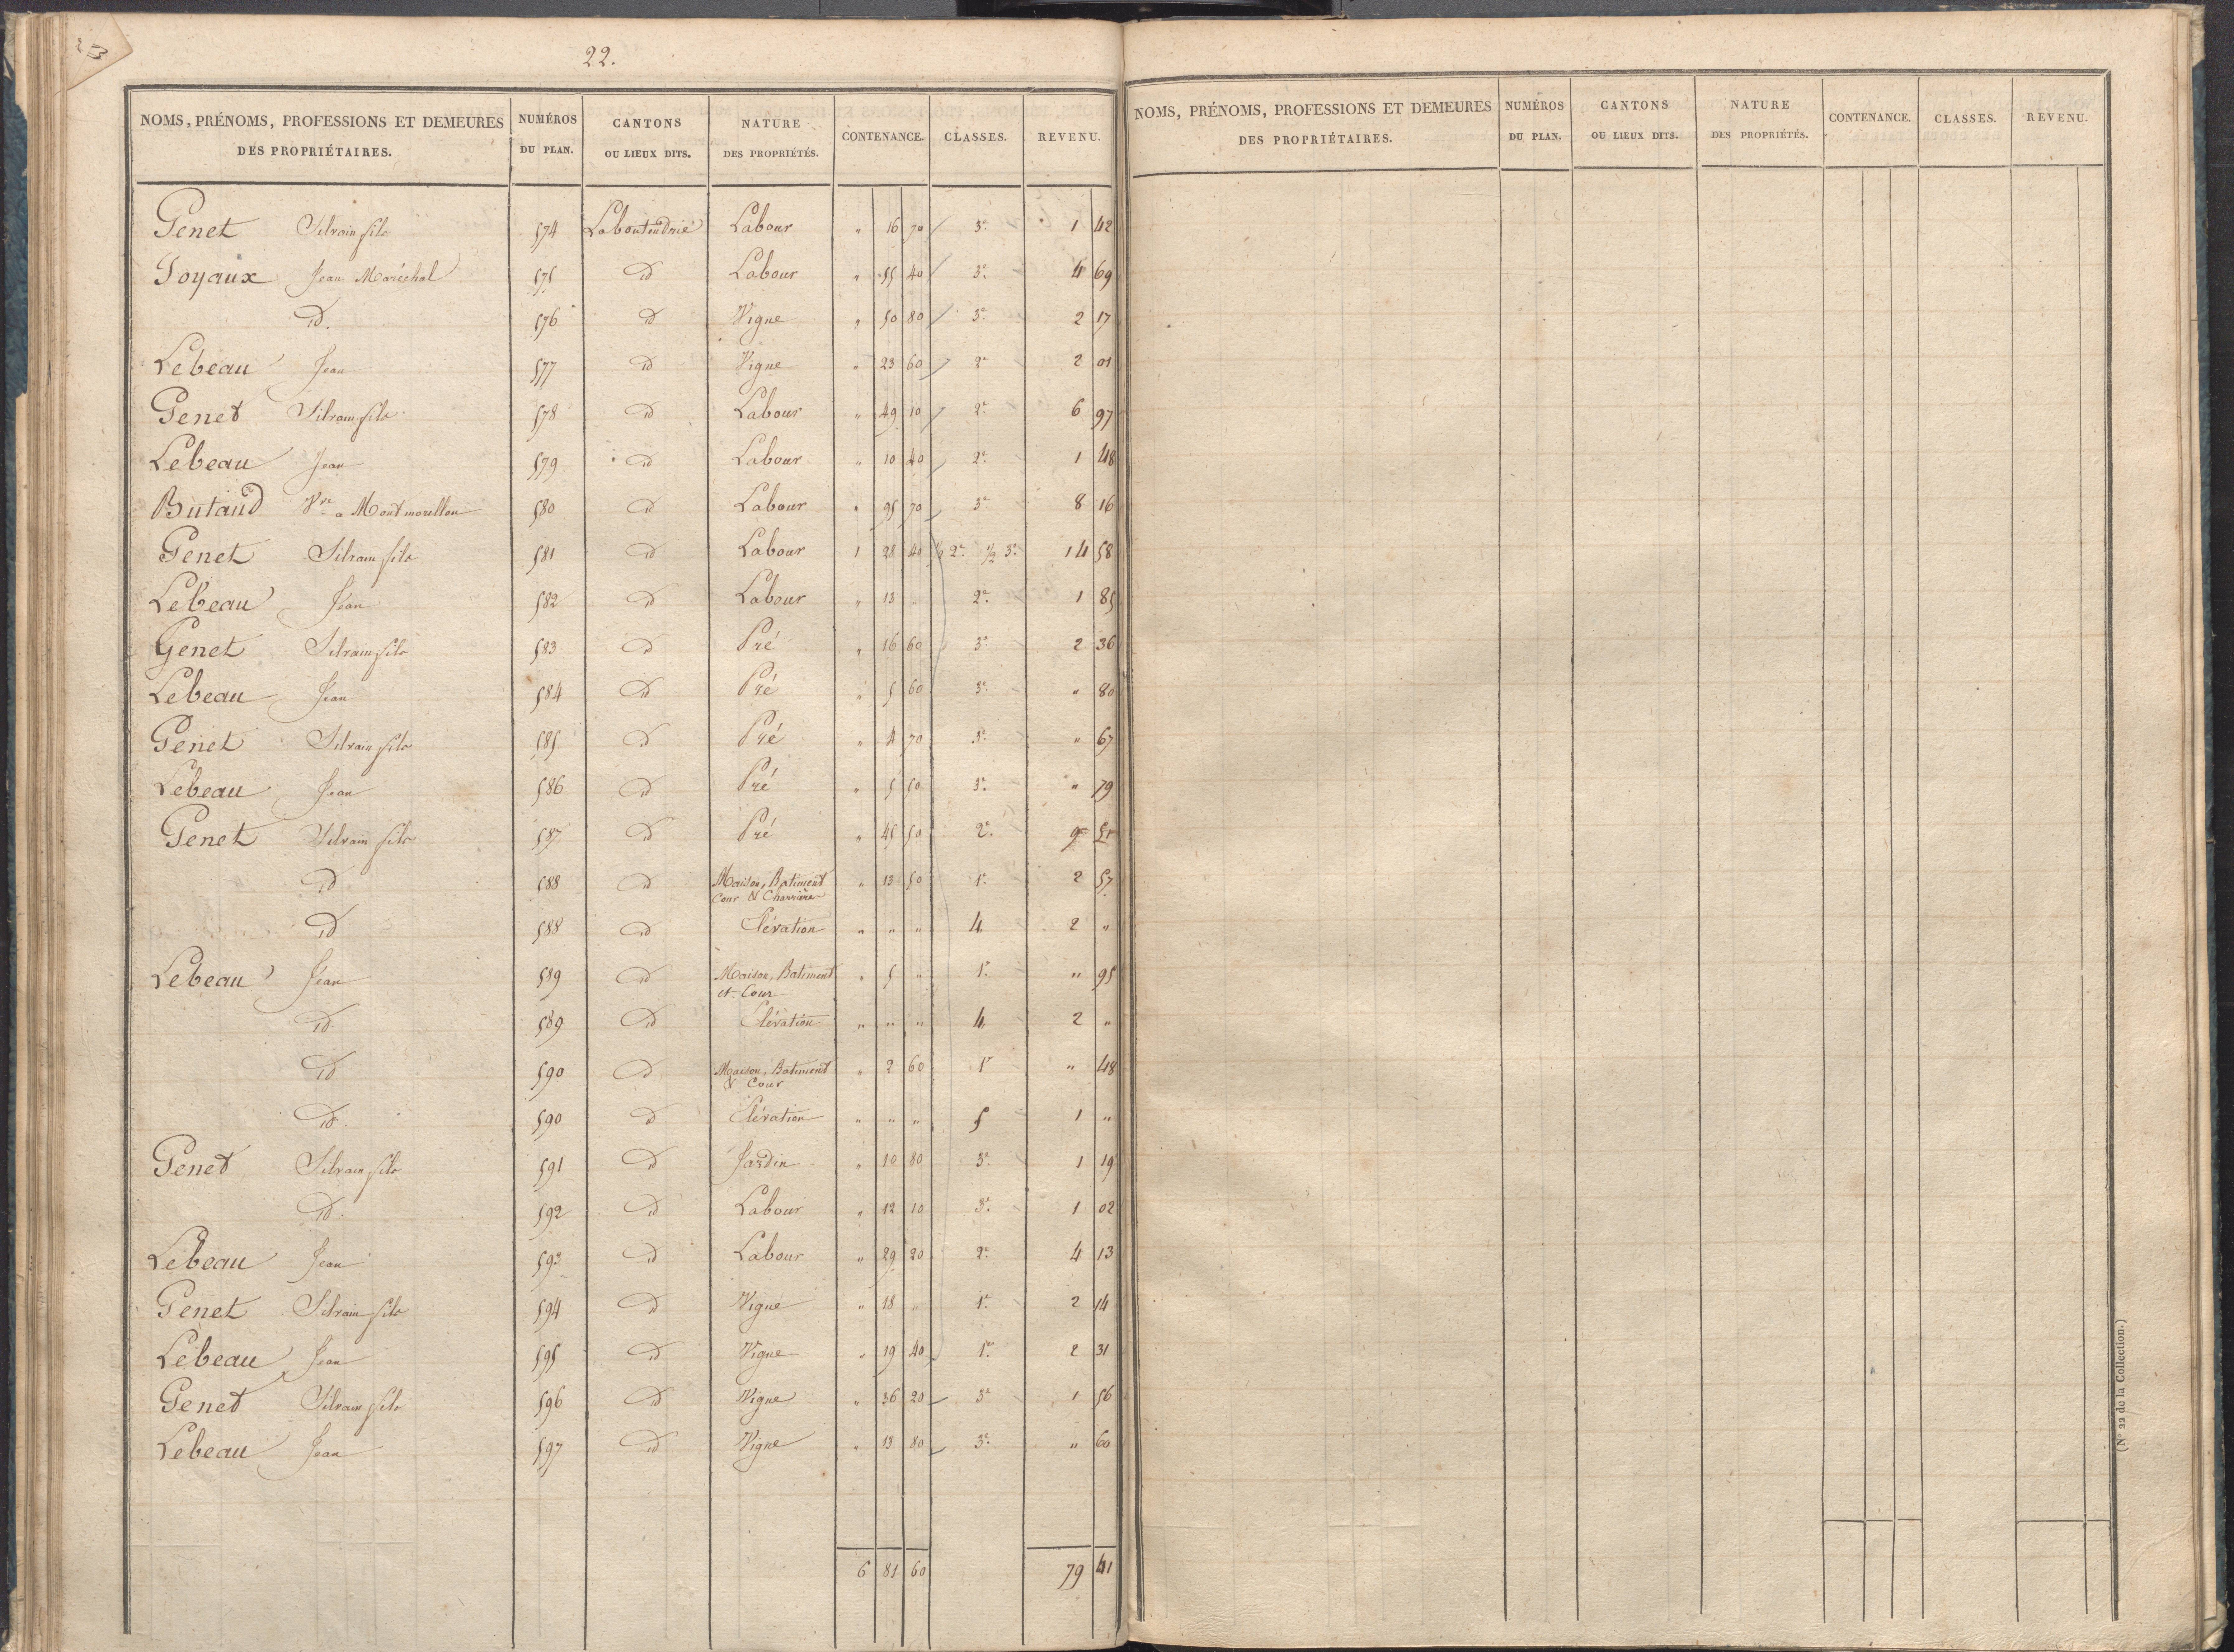 22.
NOMS, PRÉNOMS, PROFESSIONS ET DEMEURES DES PROPRIÉTAIRES. NUMÉROS DU PLAN. CANTONS OU LIEUX DITS. NATURE DES PROPRIÉTÉS. CONTENANCE. CLASSES. REVENU.
Genet Silvain fils 574 Laboutudrie Labour " 16 70 3e 1 42
Goyaux Jean Maréchal 575 id Labour " 55 40 3e 4 69
id. 576 id Vigne " 50 80 3e 2 17
Lebeau Jean 577 id Vigne " 23 60 2e 2 01
Genet Silvain fils 578 id Labour " 49 10 2e 6 97
Lebeau Jean 579 id Labour " 10 40 2e 1 48
Butaud Vve a Montmorellon 580 id Labour " 95 70 3e 8 16
Genet Silvain fils 581 id Labour 1 28 40 ½ 2e ½ 3e 14 58
Lebeau Jean 582 id Labour " 13 " 2e 1 85
Genet Silvain fils 583 id Pré " 16 60 3e 2 36
Lebeau Jean 584 id Pré " 5 60 3e " 80
Genet Silvain fils 585 id Pré " 4 70 3e " 67
Lebeau Jean 586 id Pré " 5 50 3e " 79
Genet Silvain fils 587 id Pré " 45 50 2e 9 51
id 588 id Maison, Batiment Cour & Charrière " 13 50 1e 2 57
id 588 id Elévation " " " 4 2 "
Lebeau Jean 589 id Maison, Batiment et Cour " 5 " 1e " 95
id 589 id Elévation " " " 4 2 "
id 590 id Maison, Batiment & Cour " 2 60 1e " 48
id. 590 id Elévation " " " 5 1 "
Genet Silvain fils 591 id Jardin " 10 80 3e 1 19
id. 592 id Labour " 12 10 3e 1 02
Lebeau Jean 593 id Labour " 29 20 2e 4 13
Genet Silvain fils 594 id Vigne " 18 " 1e 2 14
Lebeau Jean 595 id Vigne " 19 40 1e 2 31
Genet Silvain fils 596 id Vigne " 36 20 3e 1 56
Lebeau Jean 597 id Vigne " 13 80 3e " 60
6 81 60 79 41
NOMS, PRÉNOMS, PROFESSIONS ET DEMEURES DES PROPRIÉTAIRES. NUMÉROS DU PLAN. CANTONS OU LIEUX DITS. NATURE DES PROPRIÉTÉS. CONTENANCE. CLASSES. REVENU.
(N° 22 de la Collection.)